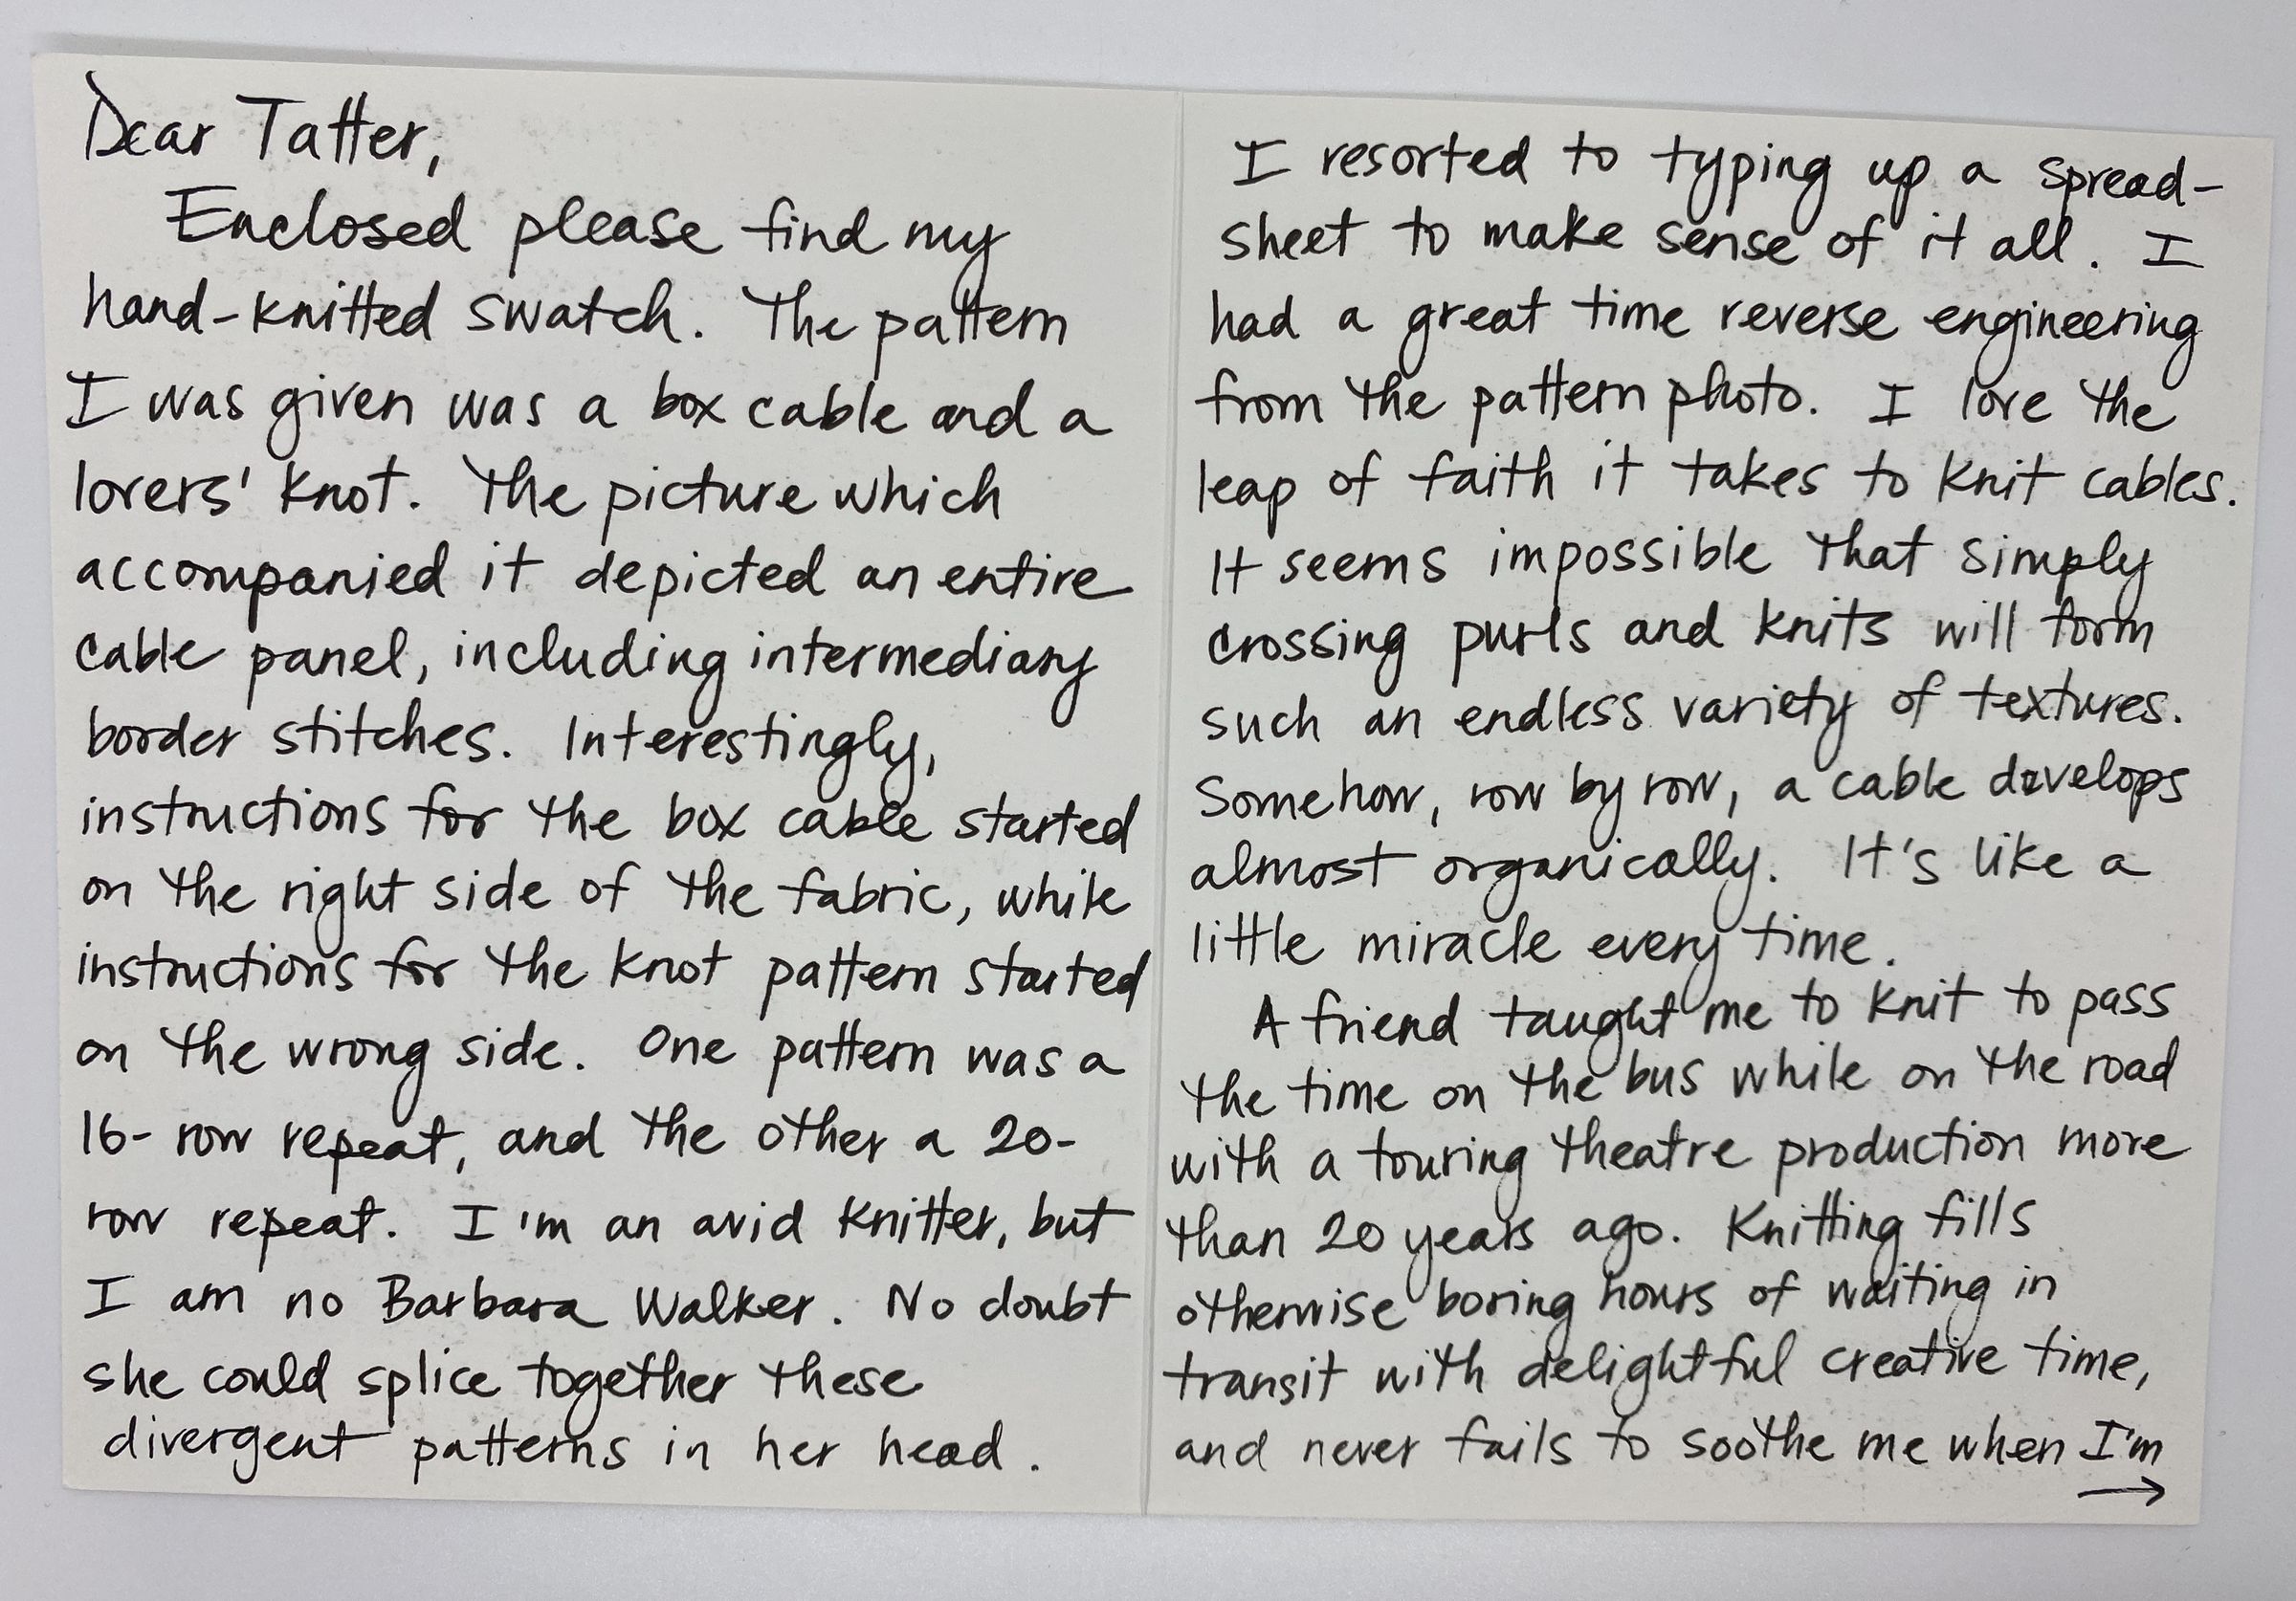 Dear Tatter,
Enclosed please find my
hand-knitted swatch. The pattern
I was given was a box cable and a
lovers' knot. The picture which
accompanied it depicted an entire
cable panel, including intermediary
border stitches. Interestingly,
instructions for the box cable started
on the right side of the fabric, while
instructions for the knot pattern started
on the wrong side. One pattern was a
16-row repeat, and the other a 20-
row repeat. I'm an avid knitter, but
I am no Barbara Walker. No doubt
she could splice together these
divergent patterns in her head.
I resorted to typing up a spread-
sheet to make sense of it all. I
had a great time reverse engineering
from the pattern photo. I love the
leap of faith it takes to knit cables.
It seems impossible that simply
crossing purls and knits will form
such an endless variety of textures.
Somehow, row by row, a cable develops
almost organically. It's like a
little miracle every time.
A friend taught me to knit to pass
the time on the bus while on the road
with a touring theatre production more
than 20 years ago. Knitting fills
otherwise boring hours of waiting in
transit with delightful creative time,
and never fails to soothe me when I'm
→